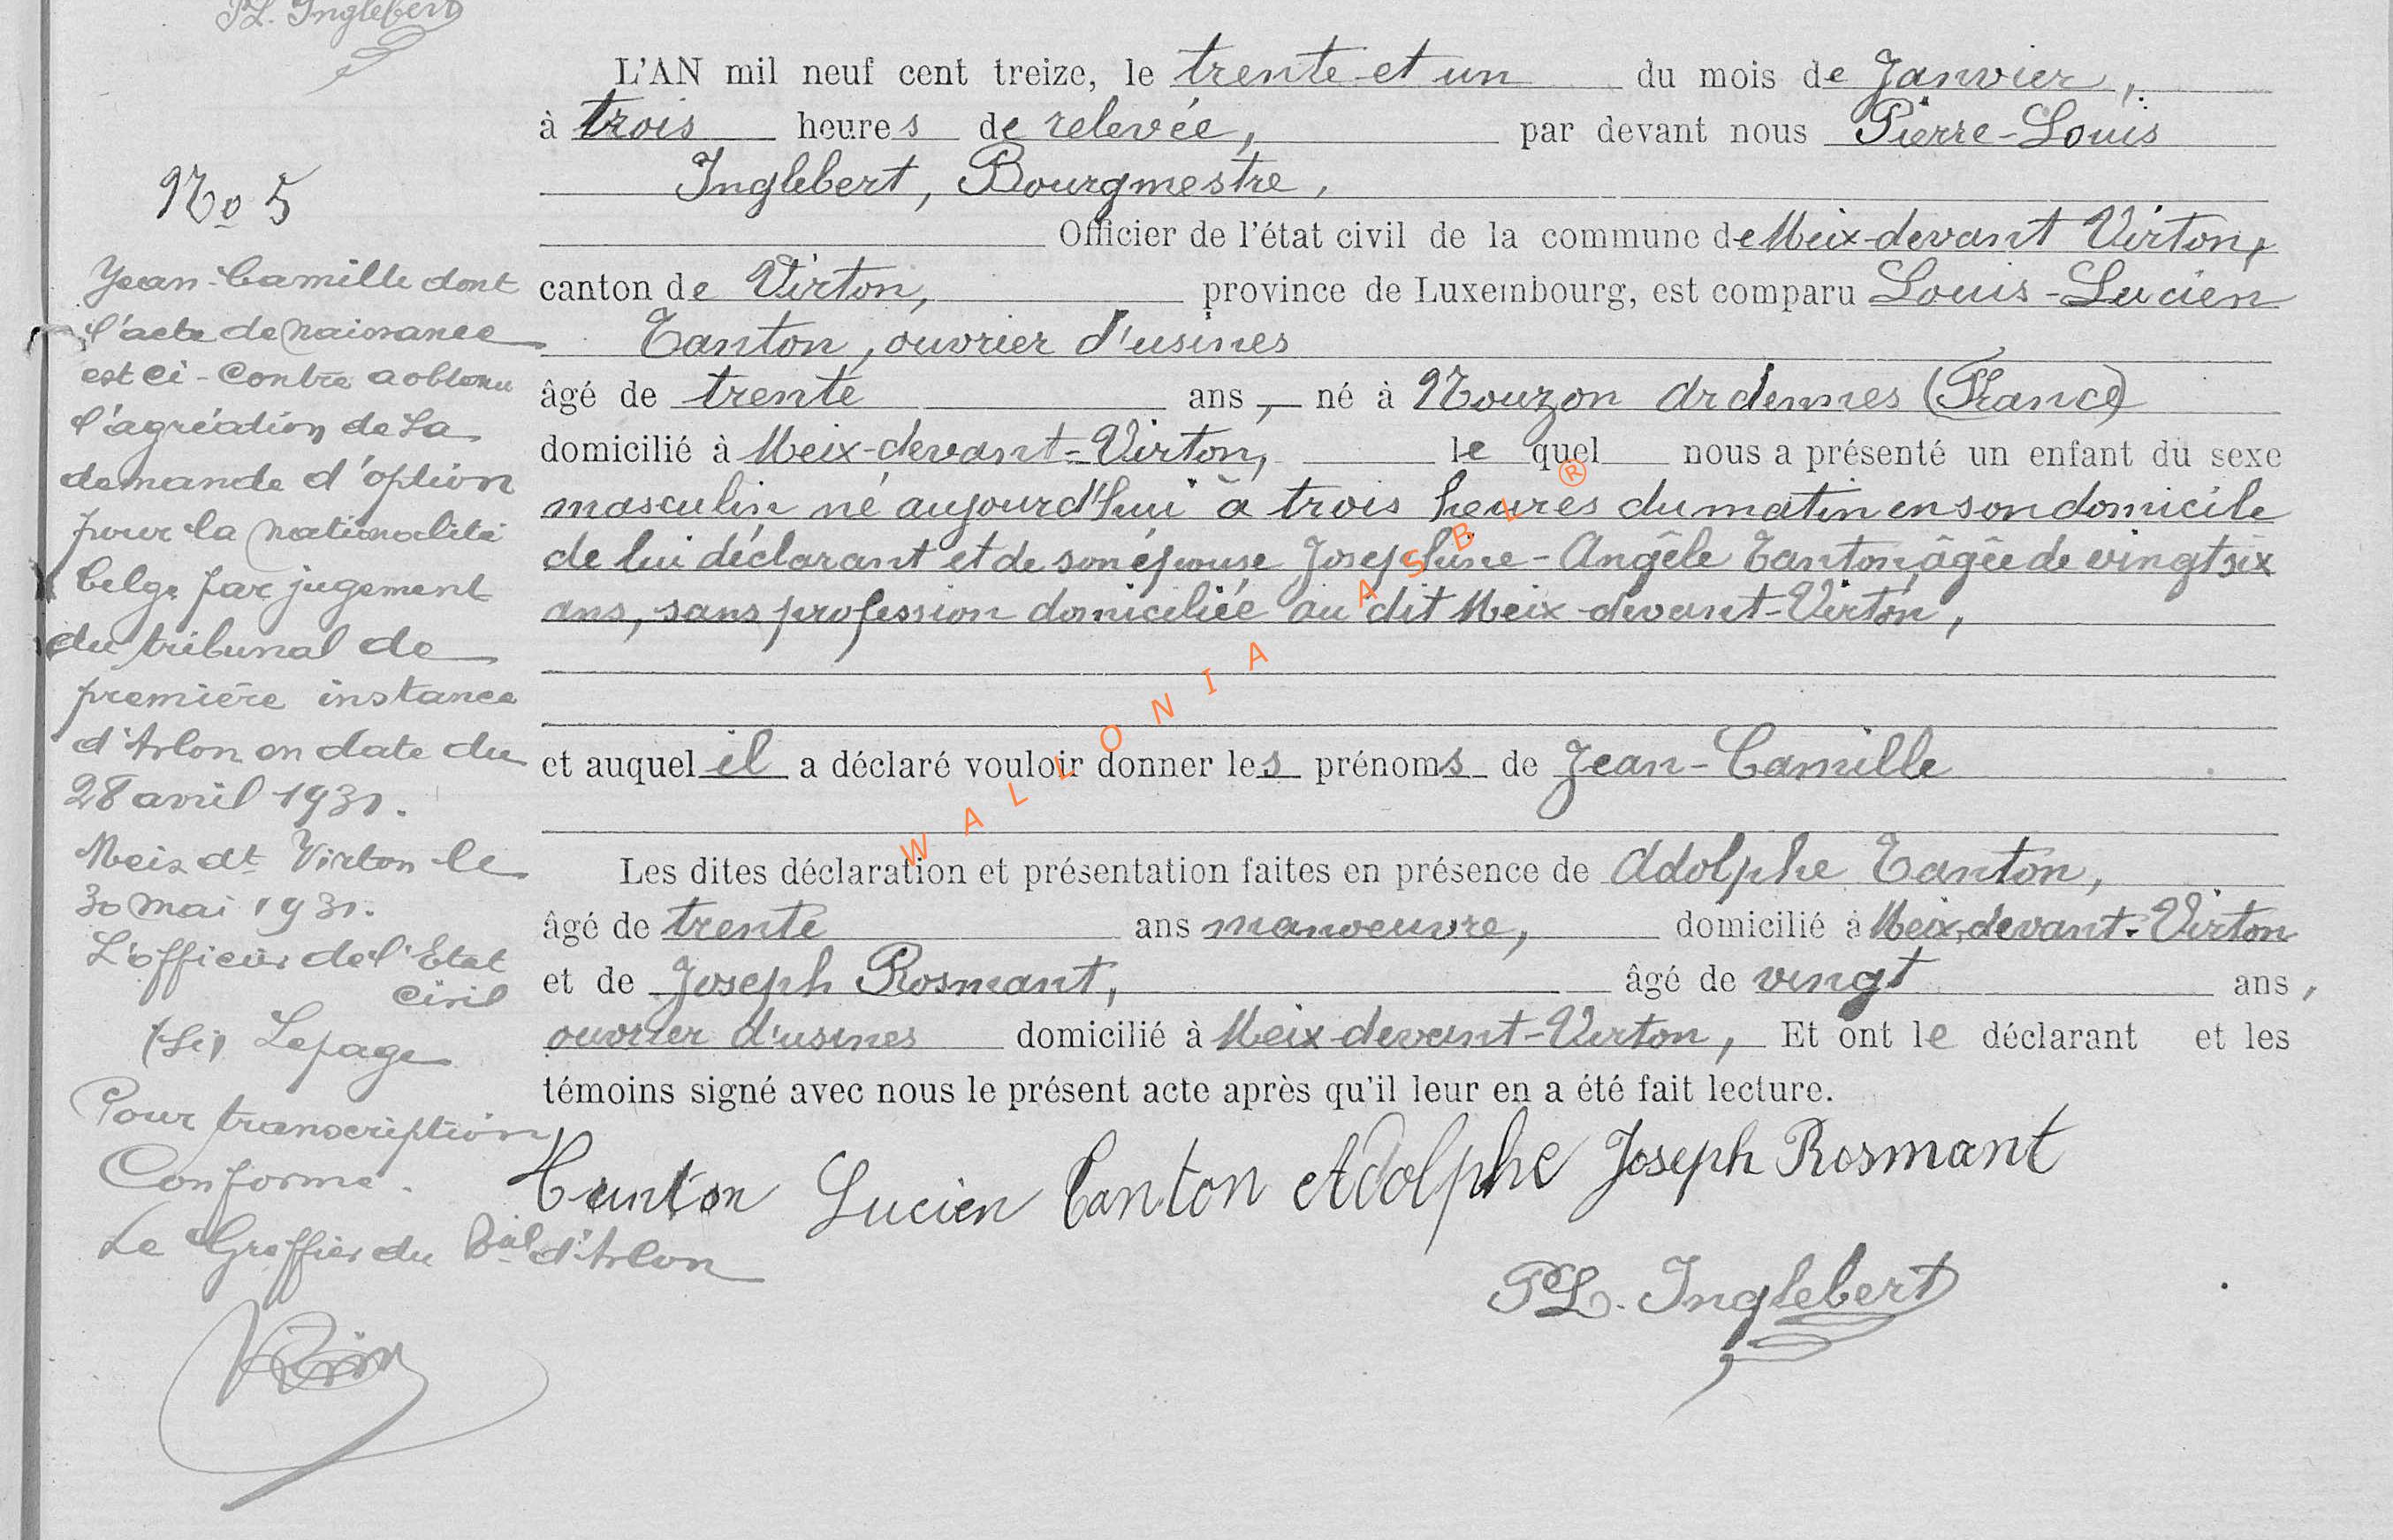 PL. Inglebert
L'AN mil neuf cent treize, le trente et un du mois de Janvier,
à trois heures de relevée, par devant nous Pierre-Louis
Inglebert, Bourgmestre,
Officier de l'état civil de la commune de Meix-devant Virton,
canton de Virton, province de Luxembourg, est comparu Louis-Lucien
Tanton, ouvrier d'usines
âgé de trente ans, né à Nouzon Ardennes (France)
domicilié à Meix-devant-Virton, le quel nous a présenté un enfant du sexe
masculin né aujourd'hui à trois heures du matin en son domicile
de lui déclarant et de son épouse Josephine-Angèle Tanton, âgée de vingt six
ans, sans profession domiciliée au dit Meix-devant-Virton,
et auquel il a déclaré vouloir donner les prénoms de Jean-Camille
Les dites déclaration et présentation faites en présence de Adolphe Tanton,
âgé de trente ans manoeuvre, domicilié à Meix-devant-Virton
et de Joseph Rosmant, âgé de vingt ans,
ouvrier d'usines domicilié à Meix-devant-Virton, Et ont le déclarant et les
témoins signé avec nous le présent acte après qu'il leur en a été fait lecture.
Tanton Lucien Tanton Adolphe Joseph Rosmant
PL. Inglebert
No 5
Jean-Camille dont
l'acte de naissance
est ci-contre a obtenu
l'agréation de sa
demande d'option
pour la nationalité
belge par jugement
du tribunal de
première instance
d'Arlon en date du
28 avril 1931.
Meix dt Virton le
30 mai 1931.
L'officier de l'Etat
Civil
(Sé) Lepage
Pour transcription
Conforme.
Le Greffier du Bal d'Arlon
WALLONIA ASBL ®